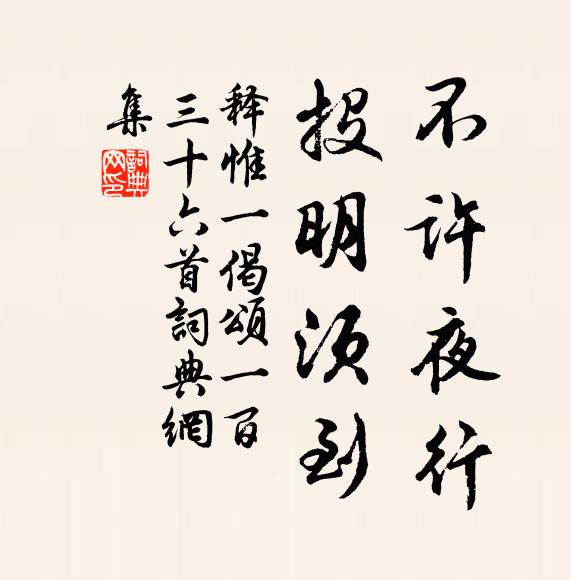 不许夜行
投明须到
释惟一偈颂一百
三十六首詞典網
集
詞典网印